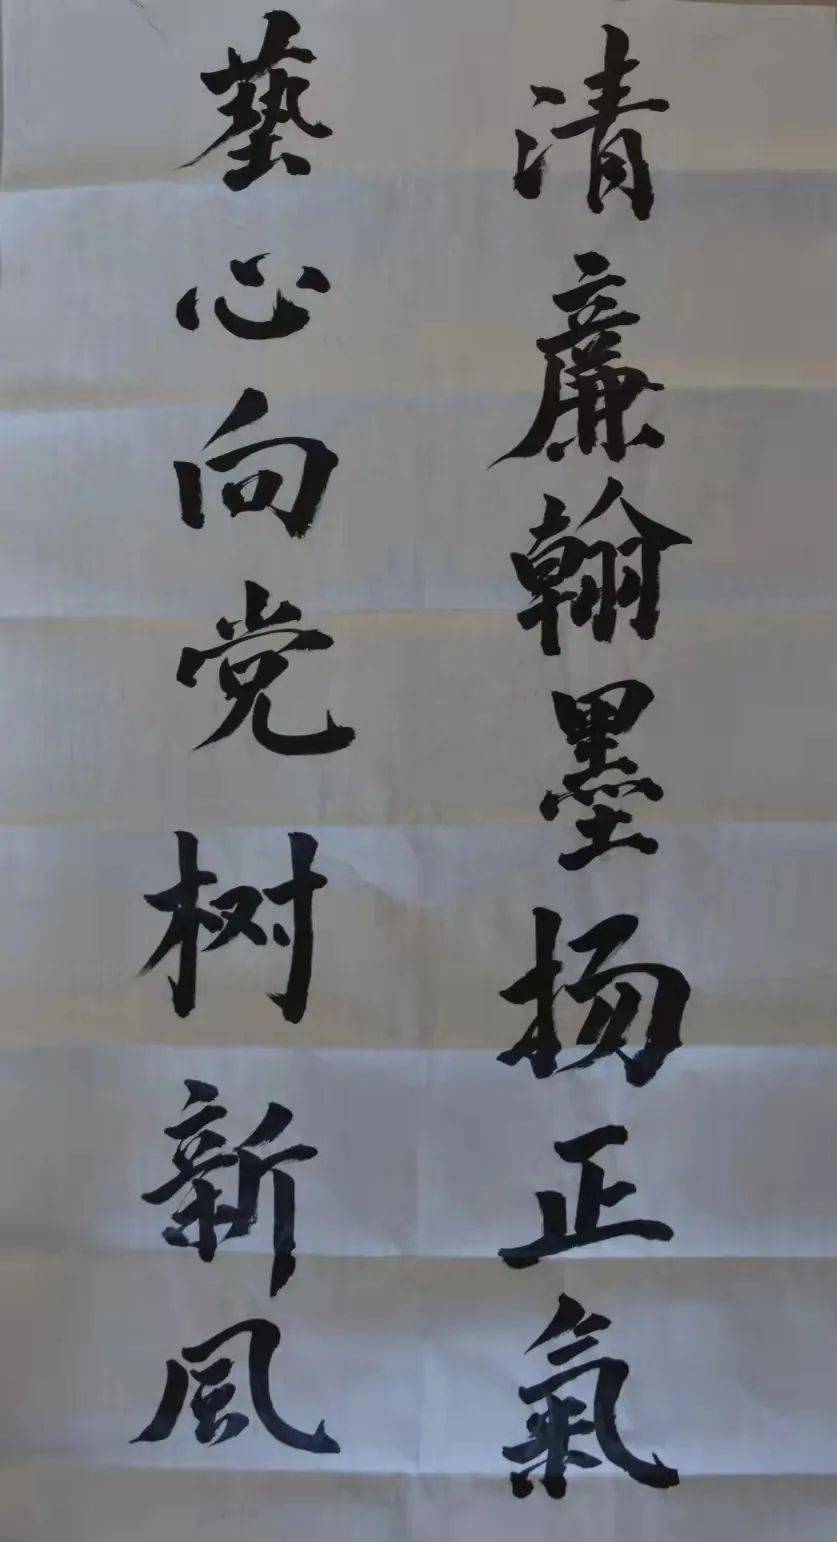 清廉翰墨扬正氣
藝心向党树新風